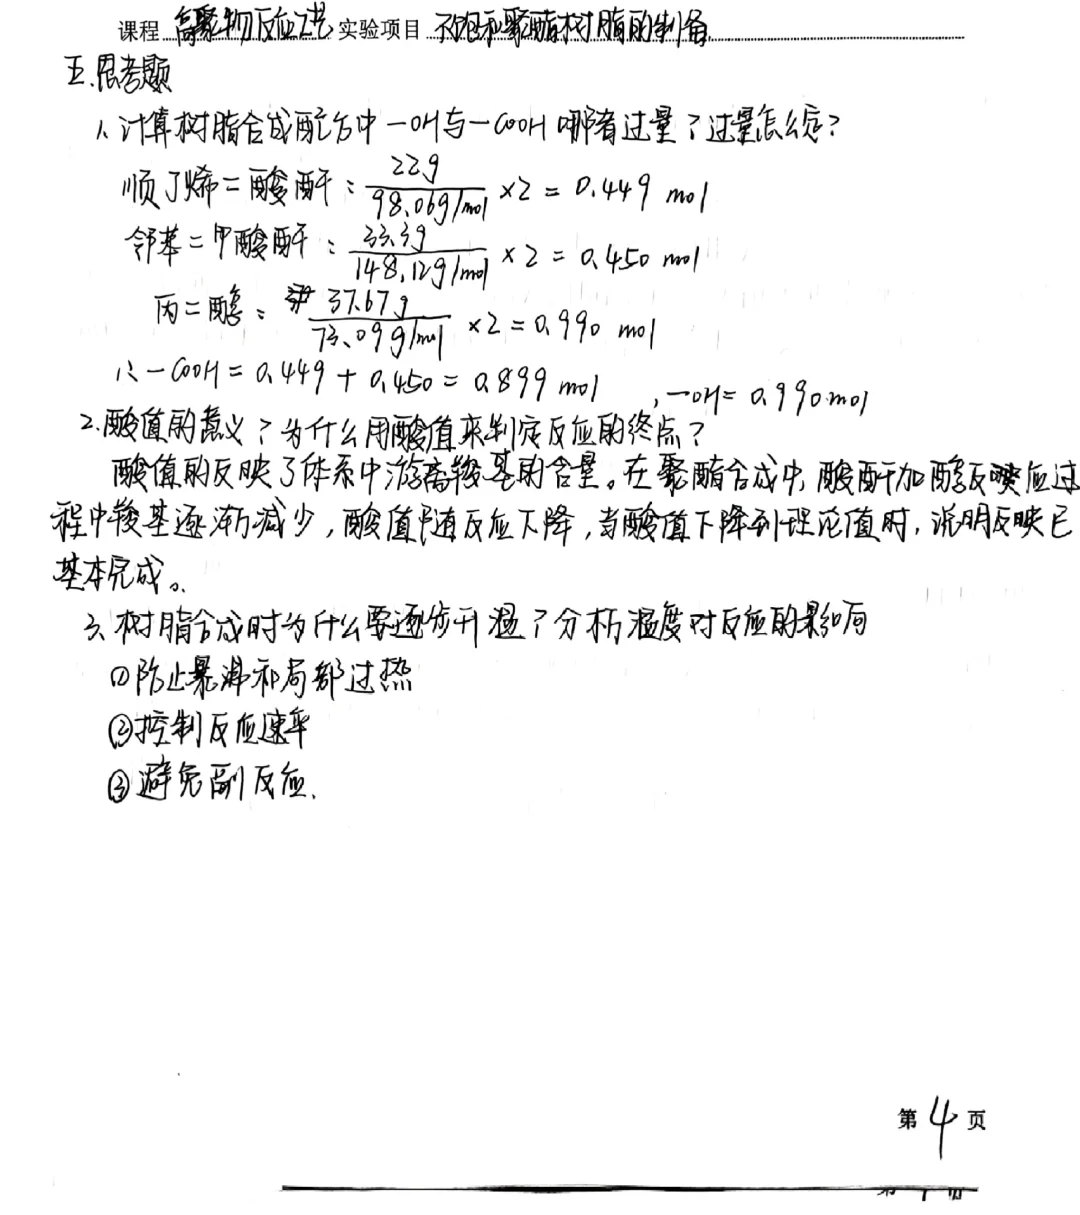 课程 高聚物反应工艺 实验项目 不饱和聚酯树脂的制备
五.思考题
1、计算树脂合成配方中 -OH与-COOH 哪者过量？过量怎么定？
顺丁烯二酸酐：22g/98.06g/mol ×2 = 0.449 mol
邻苯二甲酸酐：33.3g/148.12g/mol ×2 = 0.450 mol
丙二醇：37.67g/73.09g/mol ×2 = 0.990 mol
∴ -COOH = 0.449 + 0.450 = 0.899 mol ，-OH = 0.990 mol
2.酸值的意义？为什么用酸值来判定反应的终点？
酸值的反映了体系中游离羧基的含量。在聚酯合成中，酸酐加醇反应过
程中羧基逐渐减少，酸值随反应下降，当酸值下降到理论值时，说明反映已
基本完成。
3、树脂合成时为什么要逐步升温？分析温度对反应的影响
①防止暴沸和局部过热
②控制反应速率
③避免副反应.
第 4 页